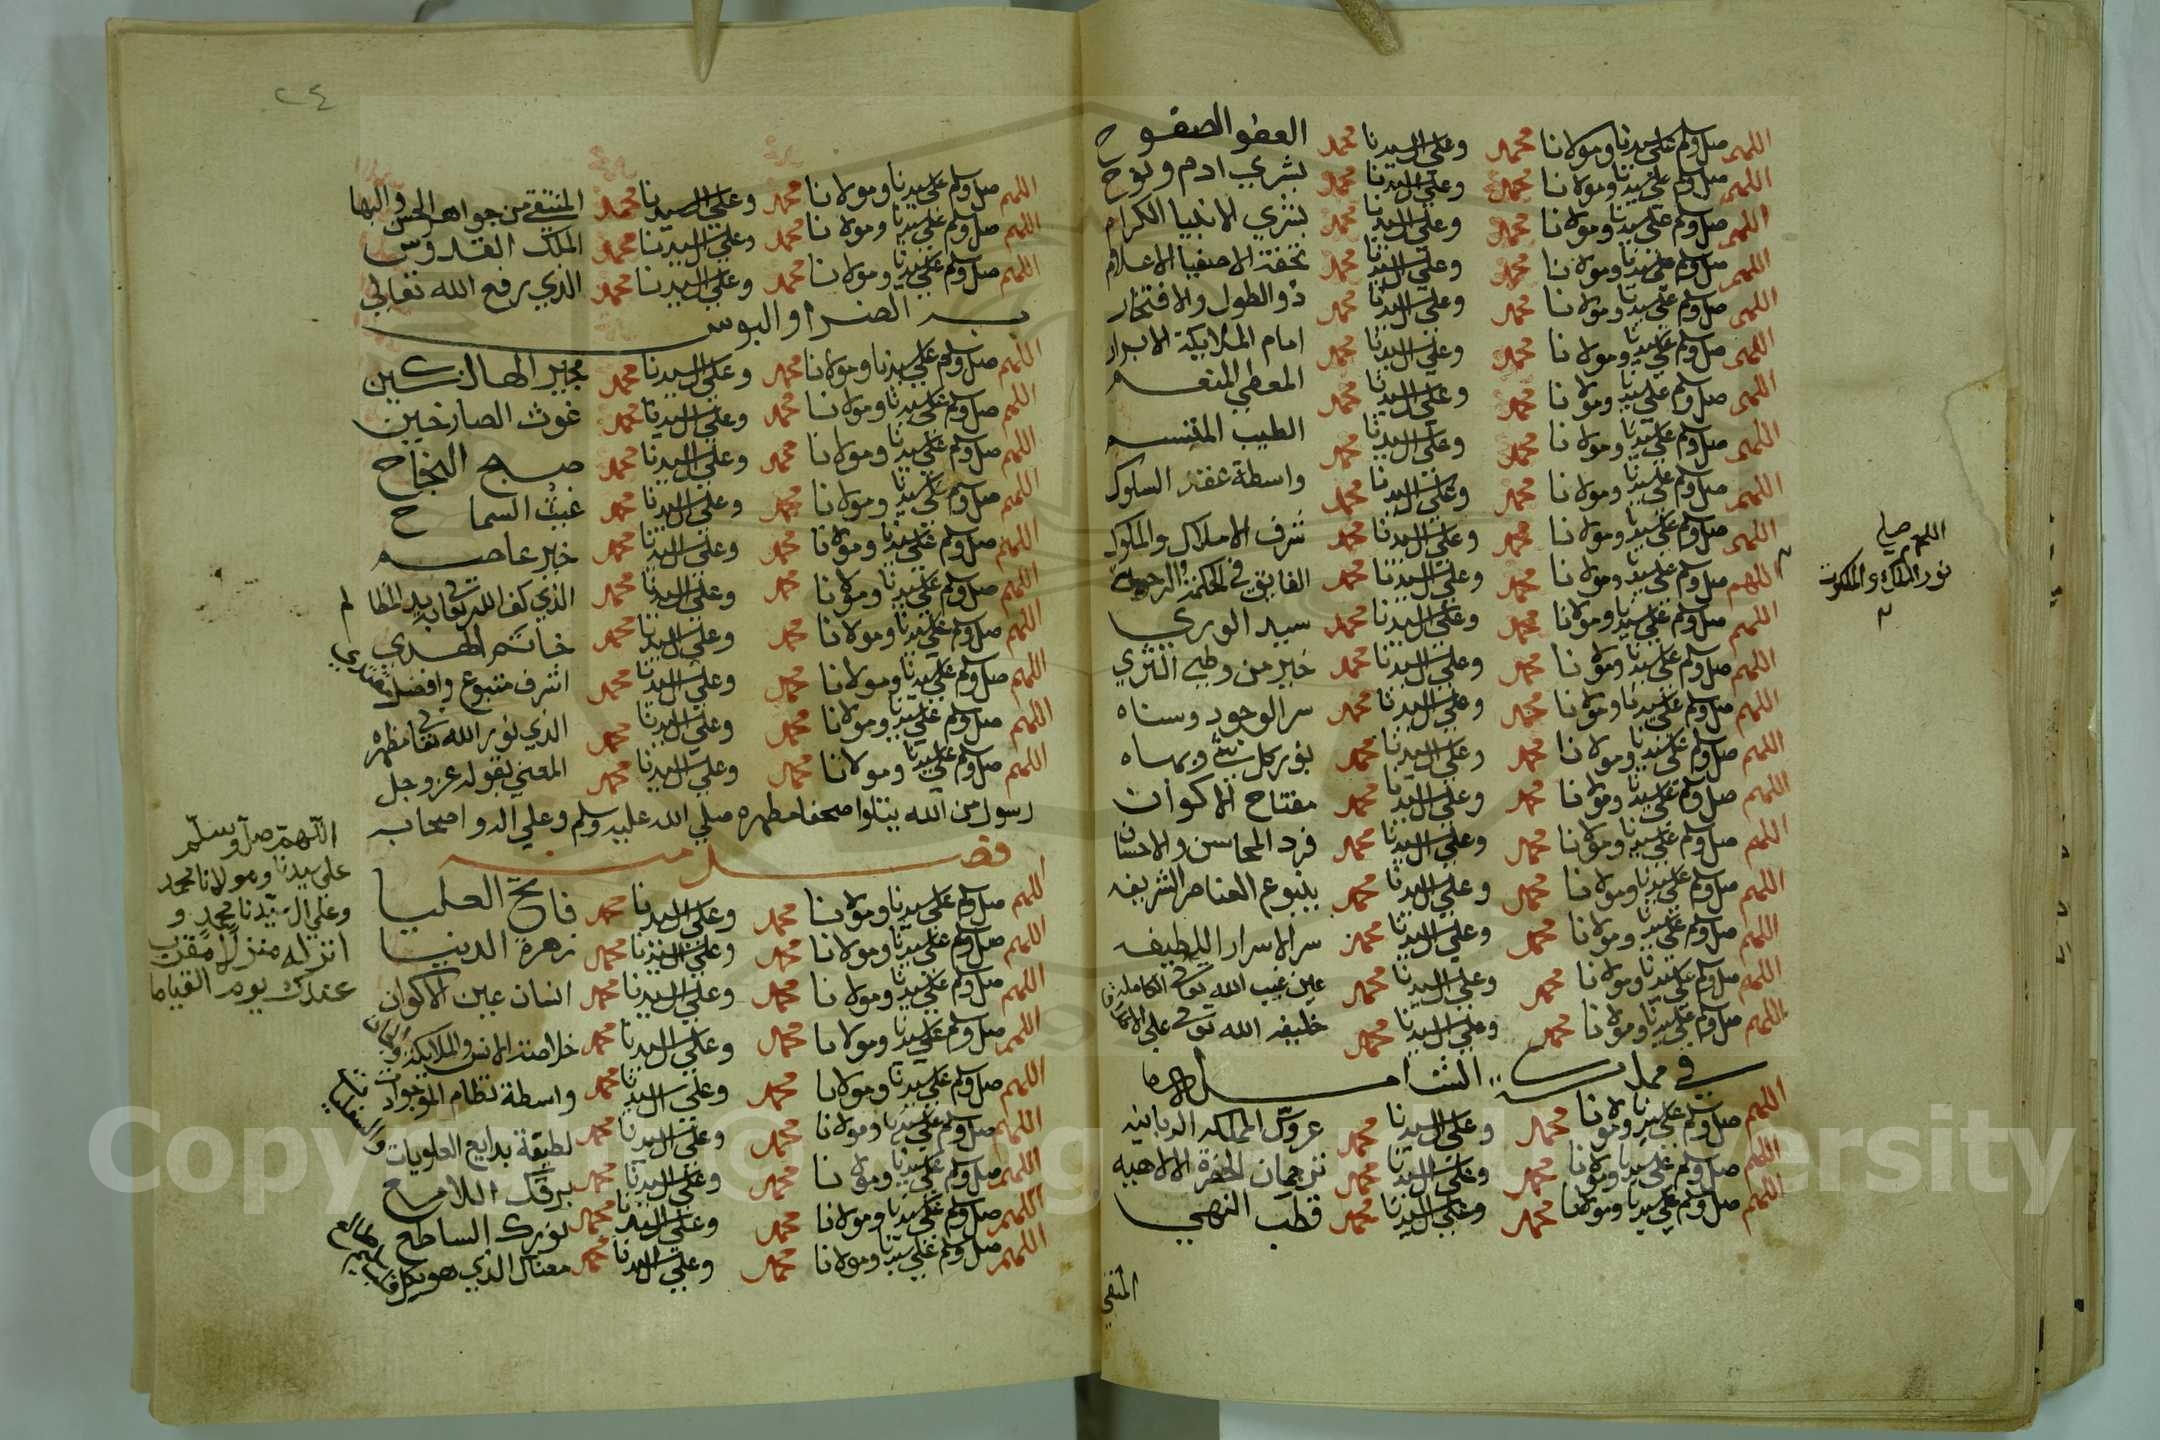 اللهم صل وسلم على سيدنا ومولانا محمد وعلى ال سيدنا محمد العفو الصفوح
اللهم صل وسلم على سيدنا ومولانا محمد وعلى ال سيدنا محمد بشري ادم ونوح
اللهم صل وسلم على سيدنا ومولانا محمد وعلى ال سيدنا محمد بشري الانبيا الكرام
اللهم صل وسلم على سيدنا ومولانا محمد وعلى ال سيدنا محمد تحفة الاصفيا الاعلام
اللهم صل وسلم على سيدنا ومولانا محمد وعلى ال سيدنا محمد ذو الطول والافتخار
اللهم صل وسلم على سيدنا ومولانا محمد وعلى ال سيدنا محمد امام الملايكة الابرار
اللهم صل وسلم على سيدنا ومولانا محمد وعلى ال سيدنا محمد المعطي المنعم
اللهم صل وسلم على سيدنا ومولانا محمد وعلى ال سيدنا محمد الطيب المبتسم
اللهم صل وسلم على سيدنا ومولانا محمد وعلى ال سيدنا محمد واسطة عقد السلوك
اللهم صل وسلم على سيدنا ومولانا محمد وعلى ال سيدنا محمد شرف الاملاك والملوك
اللهم صل وسلم على سيدنا ومولانا محمد وعلى ال سيدنا محمد الفايق في الحكمة والرحموت
اللهم صل وسلم على سيدنا ومولانا محمد وعلى ال سيدنا محمد سيد الوري
اللهم صل وسلم على سيدنا ومولانا محمد وعلى ال سيدنا محمد خير من وطي الثري
اللهم صل وسلم على سيدنا ومولانا محمد وعلى ال سيدنا محمد سر الوجود وسناه
اللهم صل وسلم على سيدنا ومولانا محمد وعلى ال سيدنا محمد نور كل شي وبهاه
اللهم صل وسلم على سيدنا ومولانا محمد وعلى ال سيدنا محمد مفتاح الاكوان
اللهم صل وسلم على سيدنا ومولانا محمد وعلى ال سيدنا محمد فرد المحاسن والاحسان
اللهم صل وسلم على سيدنا ومولانا محمد وعلى ال سيدنا محمد ينبوع العناصر الشريفه
اللهم صل وسلم على سيدنا ومولانا محمد وعلى ال سيدنا محمد سر الاسرار اللطيفه
اللهم صل وسلم على سيدنا ومولانا محمد وعلى ال سيدنا محمد عين غيب الله تعالى الكامله
اللهم صل وسلم على سيدنا ومولانا محمد وعلى ال سيدنا محمد خليفه الله تعالى على الاطلاق
في مملكته الشامله
اللهم صل وسلم على سيدنا ومولانا محمد وعلى ال سيدنا محمد عروس المملكه الربانيه
اللهم صل وسلم على سيدنا ومولانا محمد وعلى ال سيدنا محمد ترجمان الحضرة الالاهيه
اللهم صل وسلم على سيدنا ومولانا محمد وعلى ال سيدنا محمد قطب النهي
المنتقي
اللهم صلي
نور الملك والملكوت
٢٤
اللهم صل وسلم على سيدنا ومولانا محمد وعلى ال سيدنا محمد المنتقي من جواهر الحسن والبها
اللهم صل وسلم على سيدنا ومولانا محمد وعلى ال سيدنا محمد الملك القدوس
اللهم صل وسلم على سيدنا ومولانا محمد وعلى ال سيدنا محمد الذي رفع الله تعالي
به الضر او البوس
اللهم صل وسلم على سيدنا ومولانا محمد وعلى ال سيدنا محمد مجير الهالكين
اللهم صل وسلم على سيدنا ومولانا محمد وعلى ال سيدنا محمد غوث الصارخين
اللهم صل وسلم على سيدنا ومولانا محمد وعلى ال سيدنا محمد صبح النجاح
اللهم صل وسلم على سيدنا ومولانا محمد وعلى ال سيدنا محمد غيث السماح
اللهم صل وسلم على سيدنا ومولانا محمد وعلى ال سيدنا محمد خير عاصم
اللهم صل وسلم على سيدنا ومولانا محمد وعلى ال سيدنا محمد الذي كف الله تعالى به المظالم
اللهم صل وسلم على سيدنا ومولانا محمد وعلى ال سيدنا محمد خاتم الهدي
اللهم صل وسلم على سيدنا ومولانا محمد وعلى ال سيدنا محمد اشرف متبوع وافضل مقتدي
اللهم صل وسلم على سيدنا ومولانا محمد وعلى ال سيدنا محمد الذي نور الله تعالى مظهره
اللهم صل وسلم على سيدنا ومولانا محمد وعلى ال سيدنا محمد المعني بقوله عز وجل
رسول من الله يتلوا صحفا مطهره صلي الله عليه وسلم وعلي اله واصحابه
فصل منه
اللهم صل وسلم على سيدنا ومولانا محمد وعلى ال سيدنا محمد فاتح العليا
اللهم صل وسلم على سيدنا ومولانا محمد وعلى ال سيدنا محمد زهرة الدنيا
اللهم صل وسلم على سيدنا ومولانا محمد وعلى ال سيدنا محمد انسان عين الاكوان
اللهم صل وسلم على سيدنا ومولانا محمد وعلى ال سيدنا محمد خلاصة الانس والملايكة والجان
اللهم صل وسلم على سيدنا ومولانا محمد وعلى ال سيدنا محمد واسطة نظام الموجودات
اللهم صل وسلم على سيدنا ومولانا محمد وعلى ال سيدنا محمد لطيفة بدايع العلويات والسفليات
اللهم صل وسلم على سيدنا ومولانا محمد وعلى ال سيدنا محمد برقك اللامع
اللهم صل وسلم على سيدنا ومولانا محمد وعلى ال سيدنا محمد نورك الساطع
اللهم صل وسلم على سيدنا ومولانا محمد وعلى ال سيدنا محمد معناك الذي هو بكل
اللهم صل وسلم
على سيدنا ومولانا محمد
وعلي ال سيدنا محمد و
انزله منزل المقرب
عندك يوم القياما
Copyright © King Saud University